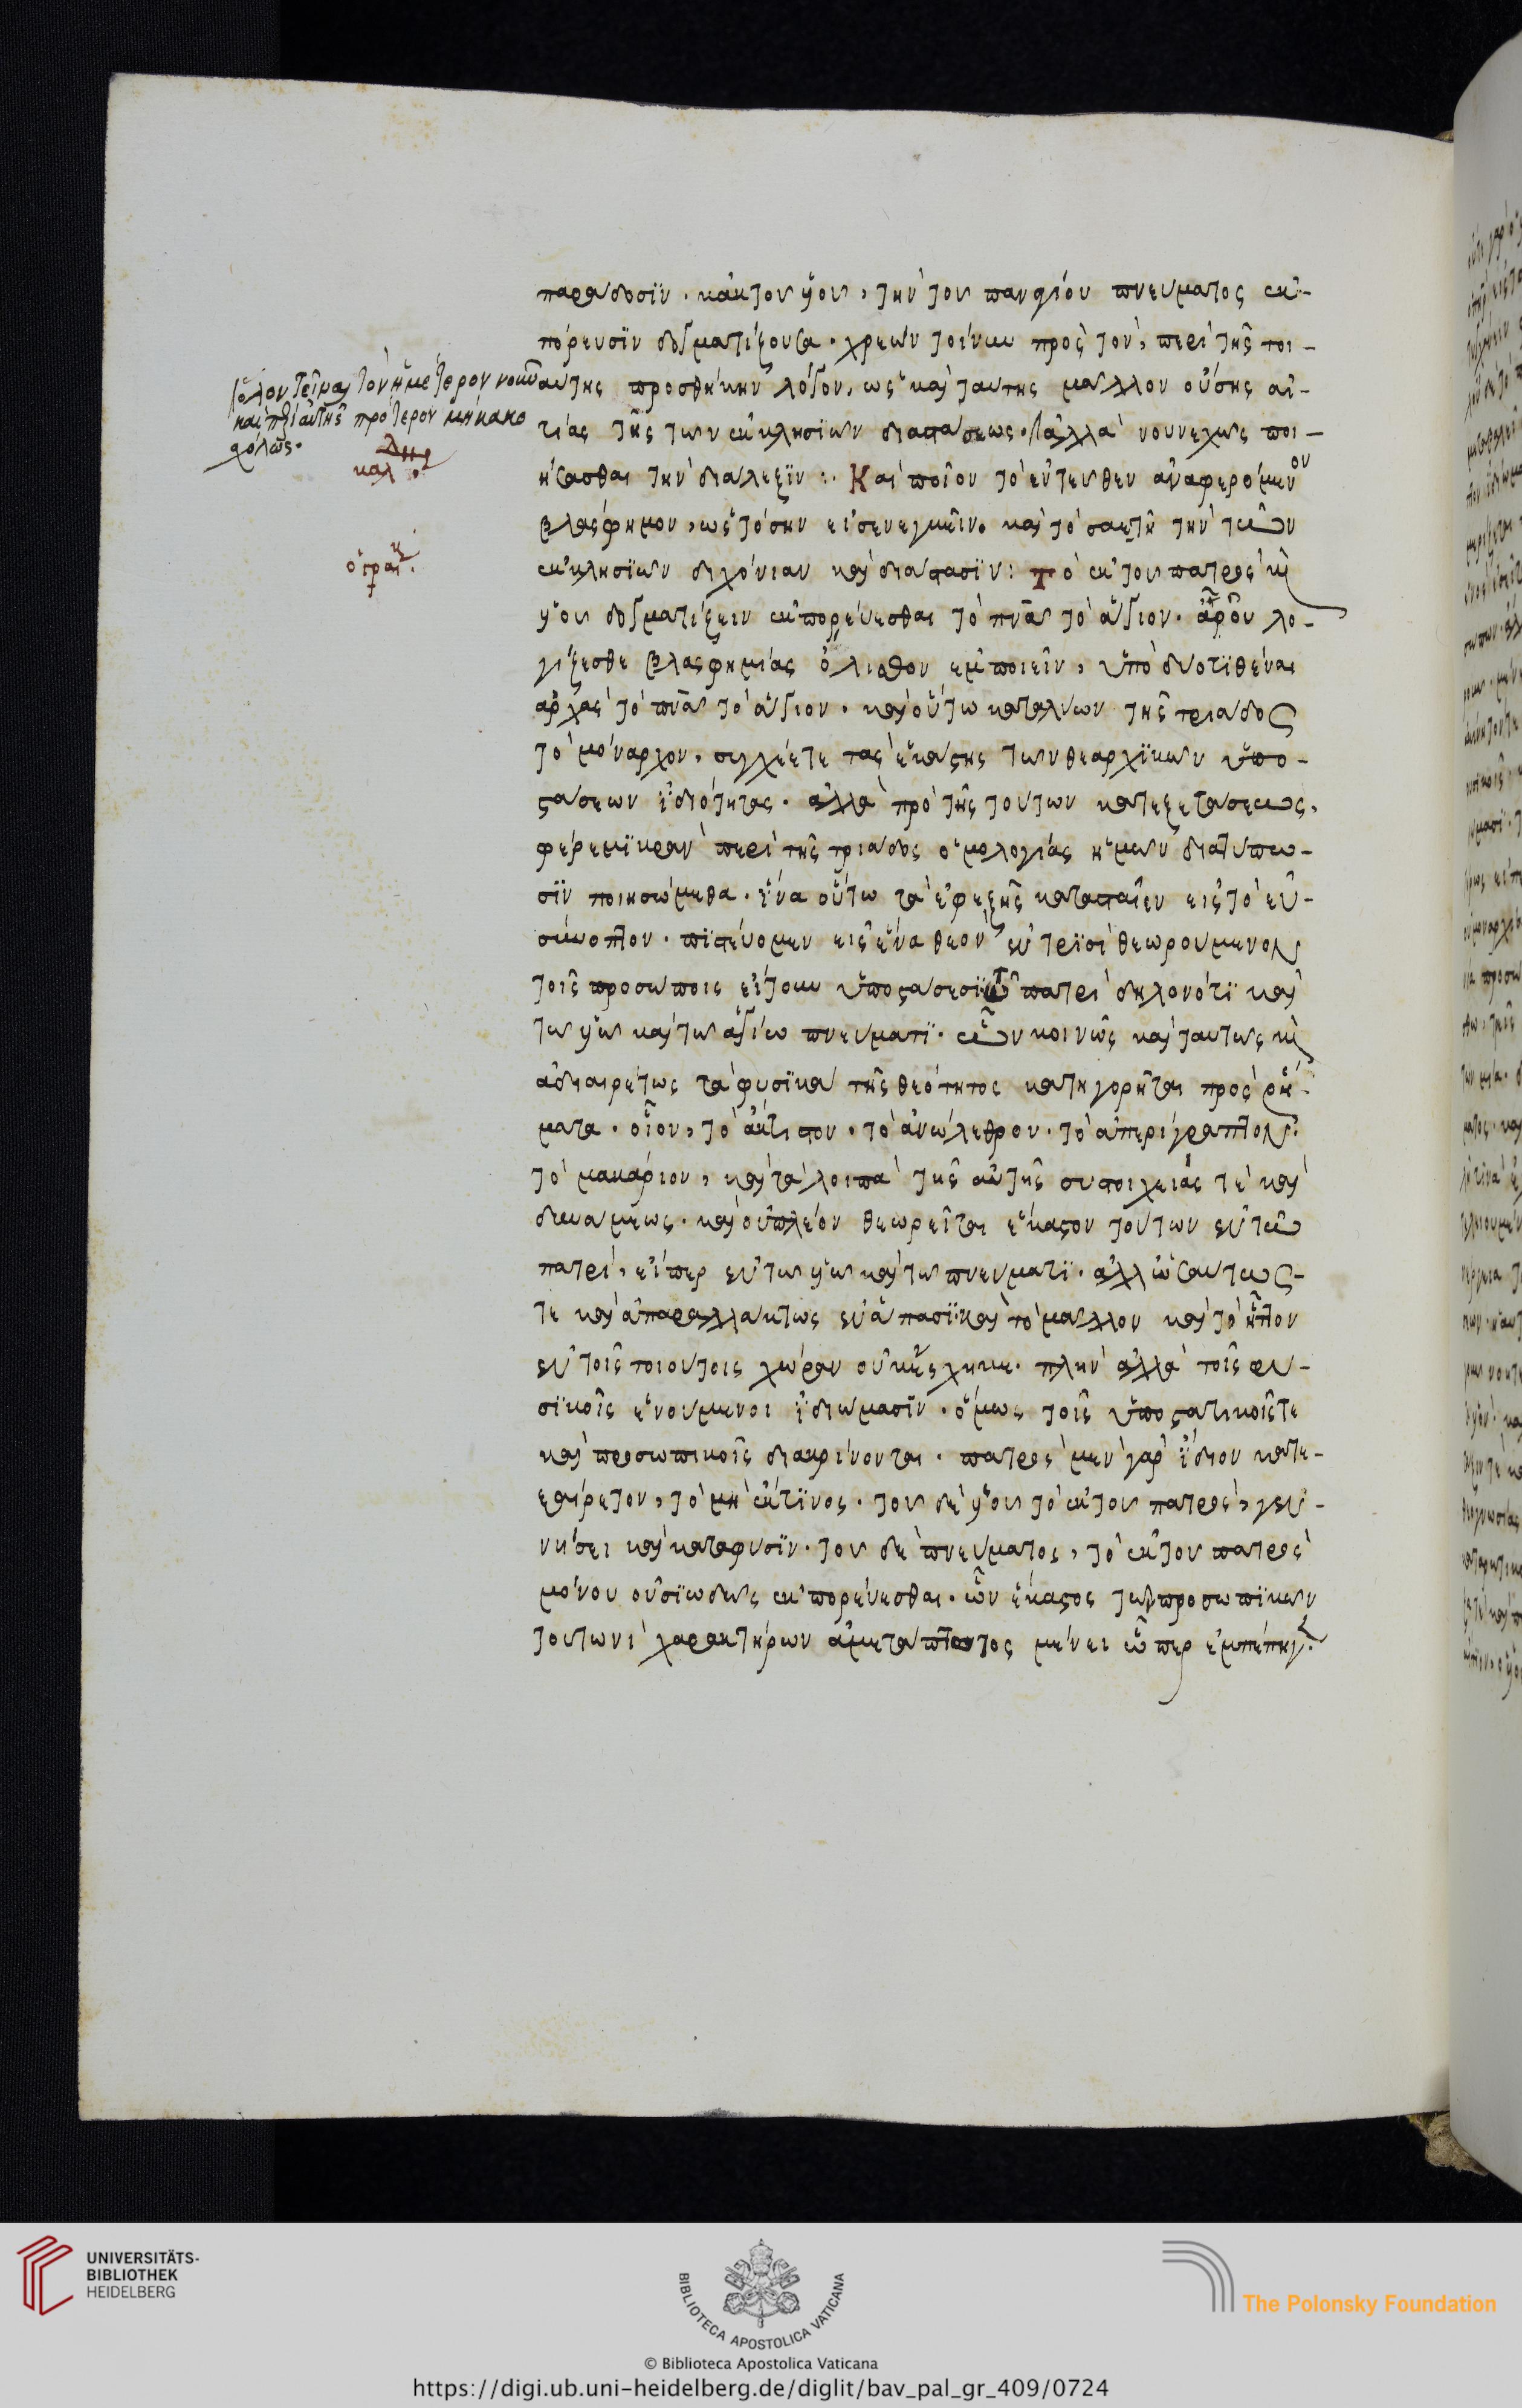 παράδοσιν. κἀκ τοῦ υἱοῦ, τὴν τοῦ παναγίου πνεύματος ἐκ-
πόρευσιν δογματίζουσα. χρεὼν τοίνυν πρὸς τὸν, περὶ τῆς τοι-
αύτης προσθήκην λόγον, ὡς καὶ ταύτης μᾶλλον οὔσης αἰ-
τίας τῆς τῶν ἐκκλησιῶν διαστάσεως. ἀλλὰ νουνεχῶς ποι-
ήσασθαι τὴν διάλεξιν :. Καὶ ποῖον τὸ ἐντεῦθεν ἀναφερόμενον
βλάσφημον, ὡς τόσην εἰσενεγκεῖν. καὶ τὸ σαετῆ τὴν τῶν
ἐκκλησιῶν διχόνιαν καὶ διάστασιν: Τὸ ἐκ τοῦ πατρὸς κ
υἱοῦ δογματίζειν ἐκπορεύεσθαι τὸ πνᾶ τὸ ἅγιον. ἆρ οὖν λο-
γίζεσθε βλασφημίας ὄλισθον ἐμποιεῖν, ὑπὸ δυοτιθέναι
ἀρχὰς τὸ πνᾶ τὸ ἅγιον. καὶ οὕτω καταλύων τῆς τριάδος
τὸ μόναρχον, συγχέετε τὰς ἑκάστης τῶν θεαρχικῶν ὑπο-
στάσεων ἰδιότητας. ἀλλὰ πρὸ τῆς τούτων κατεξετάσεως,
φέρε μικρὰν περὶ τῆς τριάδος ὁμολογίας ἡμῶν διατύπω-
σιν ποιησώμεθα. ἵνα οὕτω τὰ ἐφεξῆς κατασταῖεν εἰς τὸ εὐ-
σύνοπτον. πιστεύομεν εἰς ἕνα θεὸν ἐν τρισὶ θεωρούμενον
τοῖς προσώποις εἴτουν ὑποστάσεσι τῷ πατρὶ δηλονότι καὶ
τῷ υἱῷ καὶ τῷ ἁγίῳ πνεύματι. ὧν κοινῶς καὶ ταυτῶς κ
ἀδιαιρέτως τὰ φυσικὰ τῆς θεότητος κατηγορῆται προσρή-
ματα. οἷον, τὸ ἄκτιστον. τὸ ἀνώλεθρον. τὸ ἀπερίγραπτον.
τὸ μακάριον, καὶ τὰ λοιπὰ τῆς αὐτῆς συστοιχείας τὲ καὶ
δυνάμεως. καὶ οὐ πλέον θεωρεῖται ἕκαστον τούτων ἐν τῶ
πατρὶ, εἴπερ ἐν τῷ υἱῷ καὶ τῷ πνεύματι. ἀλλ ὡσαύτως-
τε καὶ ἀπαραλλάκτως ἐν ἅπασι. καὶ τὸ μᾶλλον καὶ τὸ ἧττον
ἐν τοῖς τοιούτοις χώραν οὐκ ἔσχηκε. πλὴν ἀλλὰ τοῖς φυ-
σικοῖς ἑνούμενοι ἰδιώμασιν. ὅμως τοῖς ὑποστατικοῖς τε
καὶ προσωπικοῖς διακρίνονται. πατρὸς μὲν γὰρ ἴδιον κατε-
ξαίρετον, τὸ μὴ ἔκ τινος. τοῦ δὲ υἱοῦ τὸ ἐκ τοῦ πατρὸς, γεν-
νήσει καὶ κατὰ φύσιν. τοῦ δὲ πνεύματος, τὸ ἐκ τοῦ πατρὸς
μόνου οὐσιωδῶς ἐκπορεύεσθαι. ὧν ἕκαστος τῶν προσωπικῶν
τουτωνὶ χαρακτήρων ἀμετάπτωτος μένει ᾧπερ ἐμπέπηγ.
ὅλον τεῖναι τὸν ἡμέτερον νοῦν
καὶ περὶ αὐτῆς πρότερον μὴ κακο
χόλως.
https://digi.ub.uni-heidelberg.de/diglit/bav_pal_gr_409/0724
© Biblioteca Apostolica Vaticana
UNIVERSITÄTS-
BIBLIOTHEK
HEIDELBERG
BIBLIOTECA APOSTOLICA VATICANA
The Polonsky Foundation